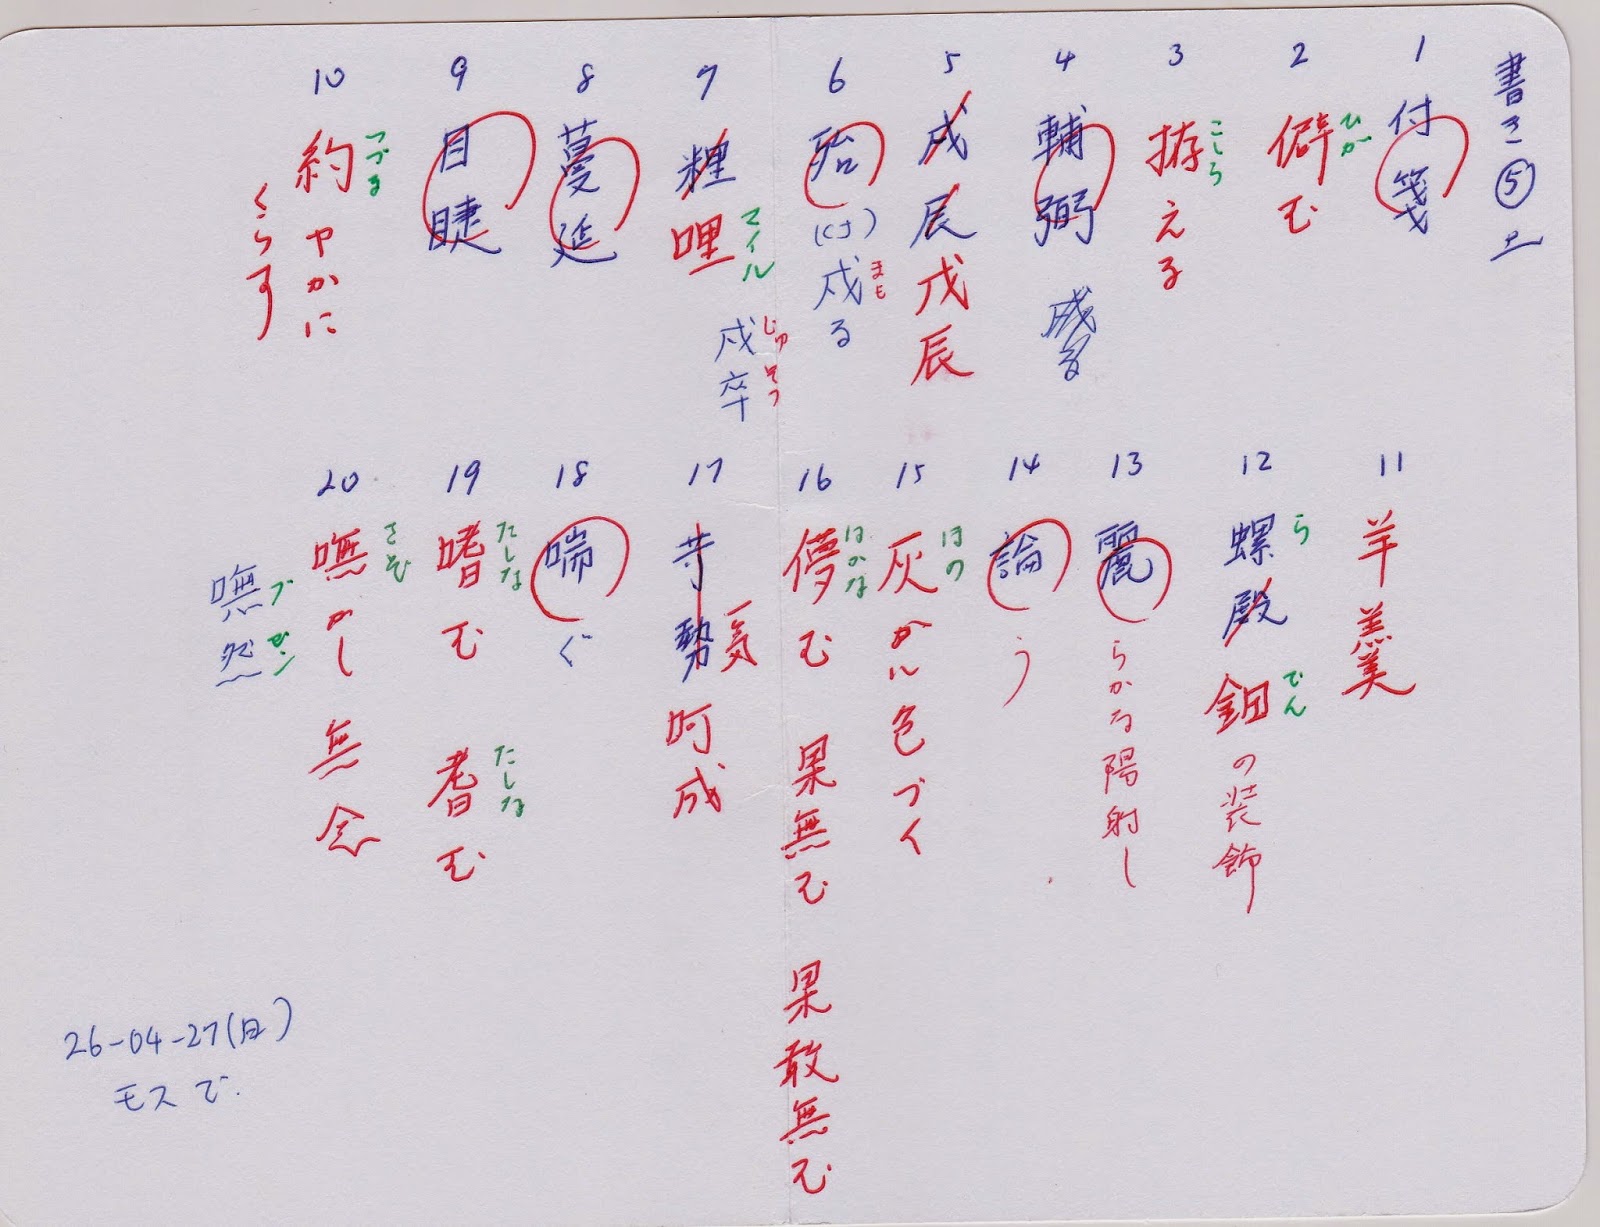 書き⑤
1 付箋
2 僻む ひが
3 拵える こしら
4 輔弼
5 戊辰 戊辰
6 殆
戍る まも
7 糎 哩 マイル
戍卒 じゅそつ
8 蔓延
9 目睫
10 約やかに つづま
くらす
11 羊羹
12 螺殿 鈿の装飾 ら でん
13 麗らかな陽射し
14 論う
15 灰かに色づく ほの
16 儚む はかな 果無む 果敢無む
17 苛勢 気 呵成
18 喘ぐ
19 嗜む たしな 耆む たしな
20 嘸かし無念 さぞ
嘸然 ブゼン
26-04-27(日)
モスで.